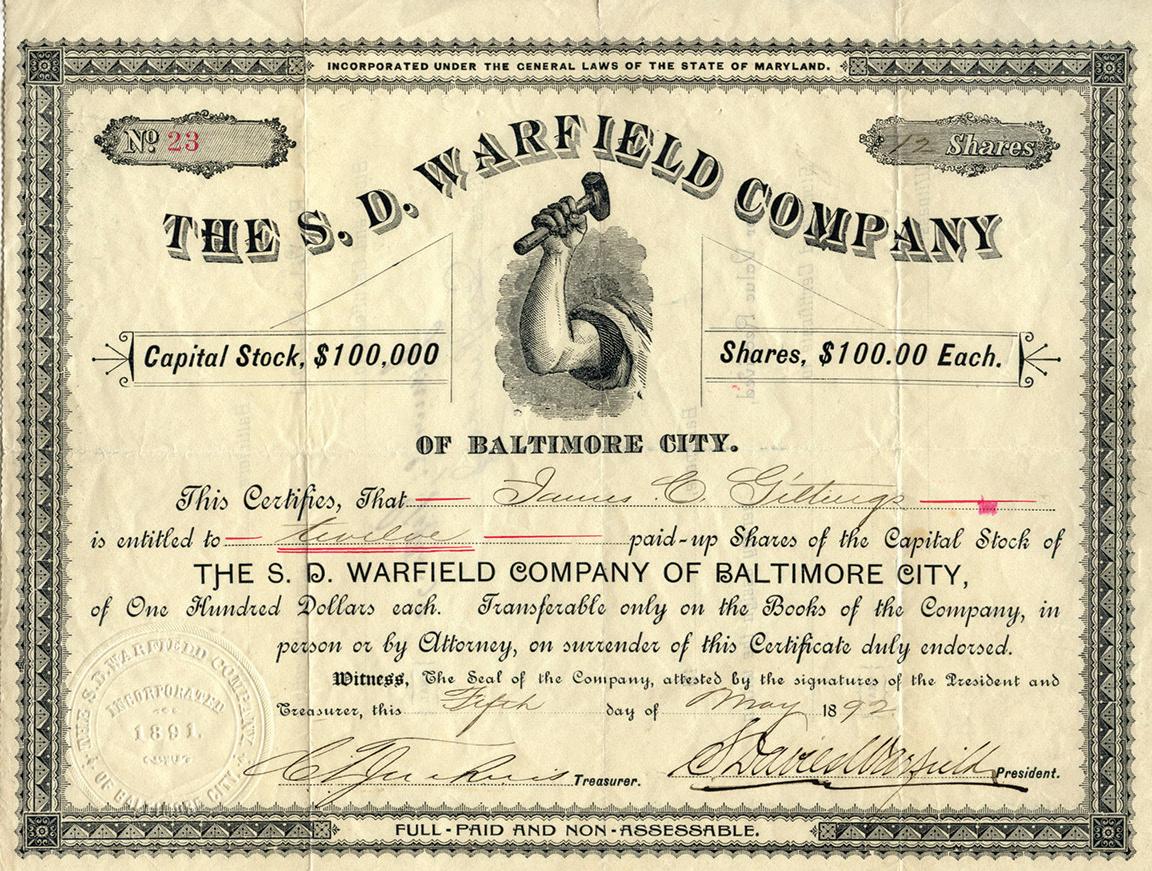 INCORPORATED UNDER THE GENERAL LAWS OF THE STATE OF MARYLAND.
No 23
12 Shares
THE S. D. WARFIELD COMPANY
Capital Stock, $100,000
Shares, $100.00 Each.
OF BALTIMORE CITY.
This Certifies, That James C. Gittings
is entitled to twelve paid-up Shares of the Capital Stock of
THE S. D. WARFIELD COMPANY OF BALTIMORE CITY,
of One Hundred Dollars each. Transferable only on the Books of the Company, in
person or by Attorney, on surrender of this Certificate duly endorsed.
Witness, The Seal of the Company, attested by the signatures of the President and
Treasurer, this Fifth day of May 1892
THE S. D. WARFIELD COMPANY OF BALTIMORE CITY
INCORPORATED
1891.
Treasurer.
S Davies Warfield President.
FULL-PAID AND NON-ASSESSABLE.